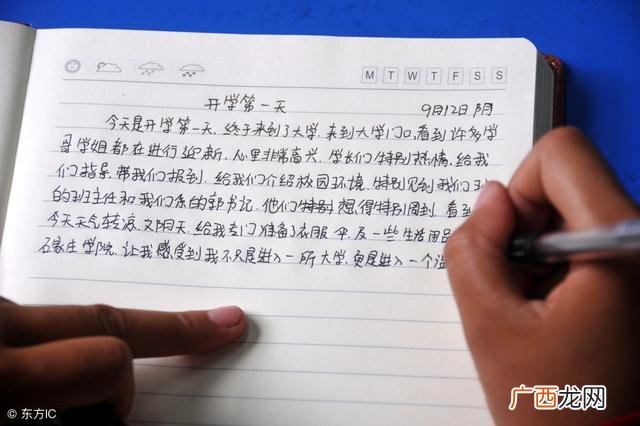 M T W T F S S
开学第一天 9月12日 阴
今天是开学第一天，终于来到了大学，来到大学门口，看到许多学
哥学姐都在进行迎新，心里非常高兴，学长们特别热情，给我
们指导，带我们报到，给我们介绍校园环境，特别见到我们
的班主任和我们系的郭书记，他们特别想得特别周到，看到
今天天气转凉，又阴天，给我们准备了衣服、伞及一些生活用品
石家庄学院，让我感受到我不只是进入一所大学，更是进入一个
© 东方IC
广西龙网